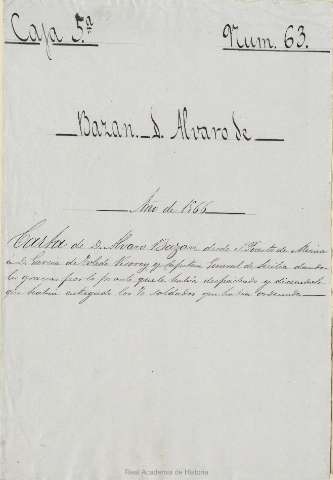 Caja 5.ª Num. 63.
Bazan. D. Alvaro de
Año de 1566
Carta de D. Alvaro Bazan desde el Puerto de Mesina
a D. Garcia de Toledo Virrey y Capitan General de Sicilia dando
le gracias por lo pronto que le habia despachado y diciendole
que habian entregado los soldados que habia ordenado
Real Academia de Historia